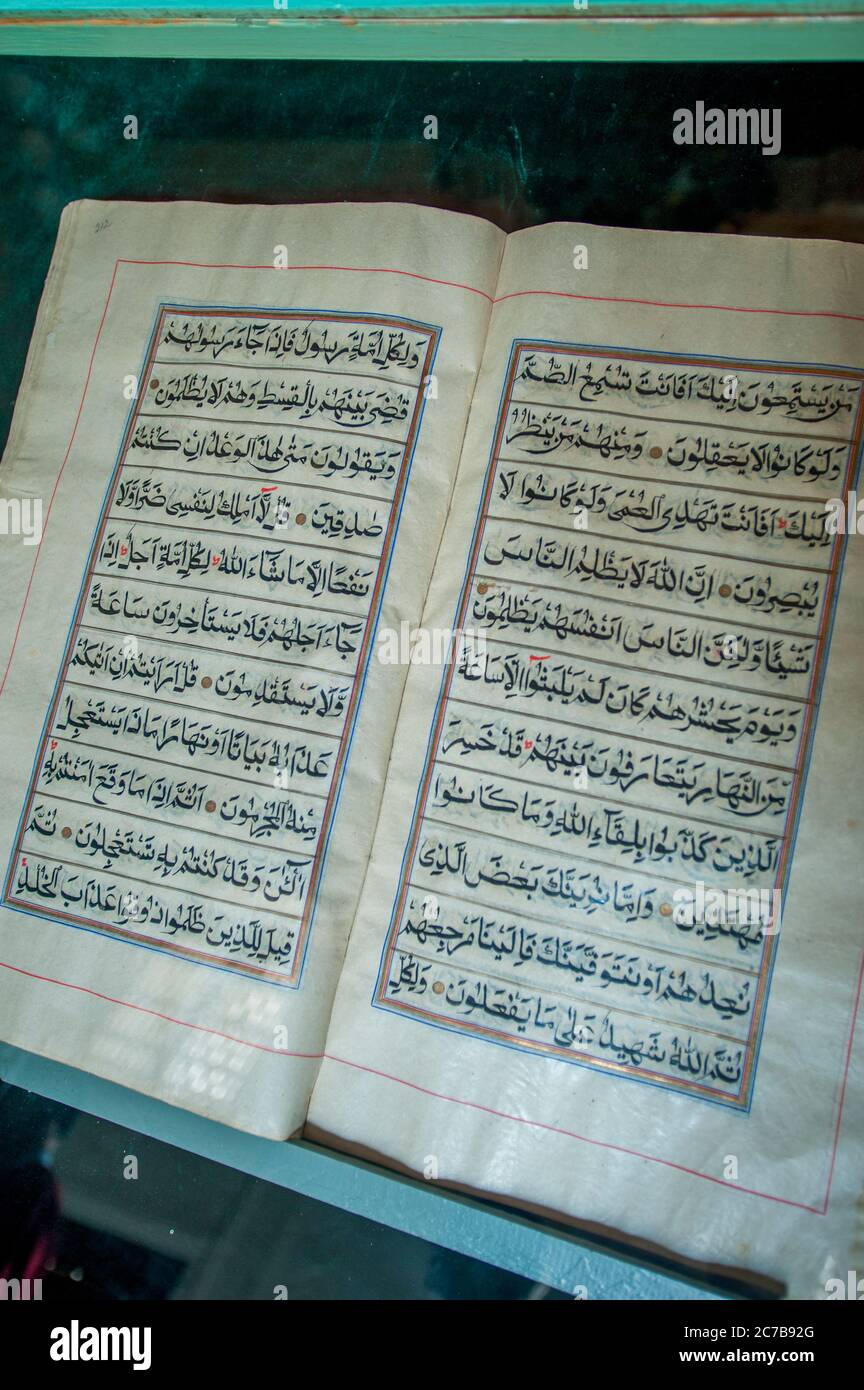 مَنْ يَسْتَمِعُونَ اِلَيْكَ اَفَاَنْتَ تُسْمِعُ الصُّمَّ
وَلَوْ كَانُوا لَا يَعْقِلُونَ ● وَمِنْهُمْ مَنْ يَنْظُرُ
اِلَيْكَ ط اَفَاَنْتَ تَهْدِى الْعُمْىَ وَلَوْ كَانُوا لَا
يُبْصِرُونَ ● اِنَّ اللّٰهَ لَا يَظْلِمُ النَّاسَ
شَيْئًا وَّلٰكِنَّ النَّاسَ اَنْفُسَهُمْ يَظْلِمُونَ ●
وَيَوْمَ يَحْشُرُهُمْ كَاَنْ لَمْ يَلْبَثُوٓا اِلَّا سَاعَةً
مِنَ النَّهَارِ يَتَعَارَفُونَ بَيْنَهُمْ ط قَدْ خَسِرَ
الَّذِينَ كَذَّبُوا بِلِقَآءِ اللّٰهِ وَمَا كَانُوا
مُهْتَدِينَ ● وَاِمَّا نُرِيَنَّكَ بَعْضَ الَّذِى
نَعِدُهُمْ اَوْ نَتَوَفَّيَنَّكَ فَاِلَيْنَا مَرْجِعُهُمْ
ثُمَّ اللّٰهُ شَهِيدٌ عَلٰى مَا يَفْعَلُونَ ● وَلِكُلِّ
212
وَلِكُلِّ اُمَّةٍ رَسُولٌ فَاِذَا جَآءَ رَسُولُهُمْ
قُضِىَ بَيْنَهُمْ بِالْقِسْطِ وَهُمْ لَا يُظْلَمُونَ ●
وَيَقُولُونَ مَتٰى هٰذَا الْوَعْدُ اِنْ كُنْتُمْ
صٰدِقِينَ ● قُلْ لَّآ اَمْلِكُ لِنَفْسِى ضَرًّا وَّلَا
نَفْعًا اِلَّا مَا شَآءَ اللّٰهُ ط لِكُلِّ اُمَّةٍ اَجَلٌ ط اِذَا
جَآءَ اَجَلُهُمْ فَلَا يَسْتَاْخِرُونَ سَاعَةً
وَّلَا يَسْتَقْدِمُونَ ● قُلْ اَرَاَيْتُمْ اِنْ اَتٰيكُمْ
عَذَابُهُ بَيَاتًا اَوْ نَهَارًا مَاذَا يَسْتَعْجِلُ
مِنْهُ الْمُجْرِمُونَ ● اَثُمَّ اِذَا مَا وَقَعَ اٰمَنْتُمْ بِهِ ط
آلْـٰٔنَ وَقَدْ كُنْتُمْ بِهِ تَسْتَعْجِلُونَ ● ثُمَّ
قِيلَ لِلَّذِينَ ظَلَمُوا ذُوقُوا عَذَابَ الْخُلْدِ
alamy
alamy
alamy
Image ID: 2C7B92G
www.alamy.com